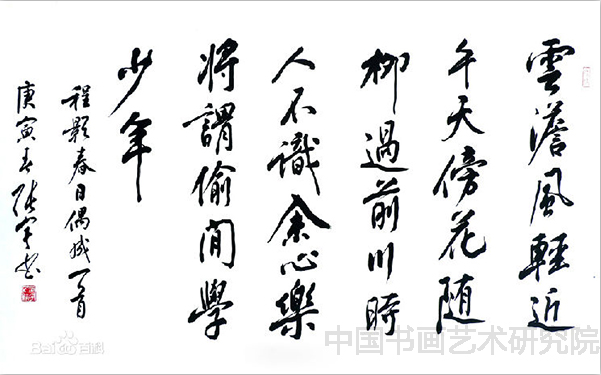 雲澹風輕近
午天傍花随
柳過前川時
人不識余心樂
將謂偷閒學
少年
程颢春日偶成一首
庚寅春
Bai百科
中国书画艺术研究院